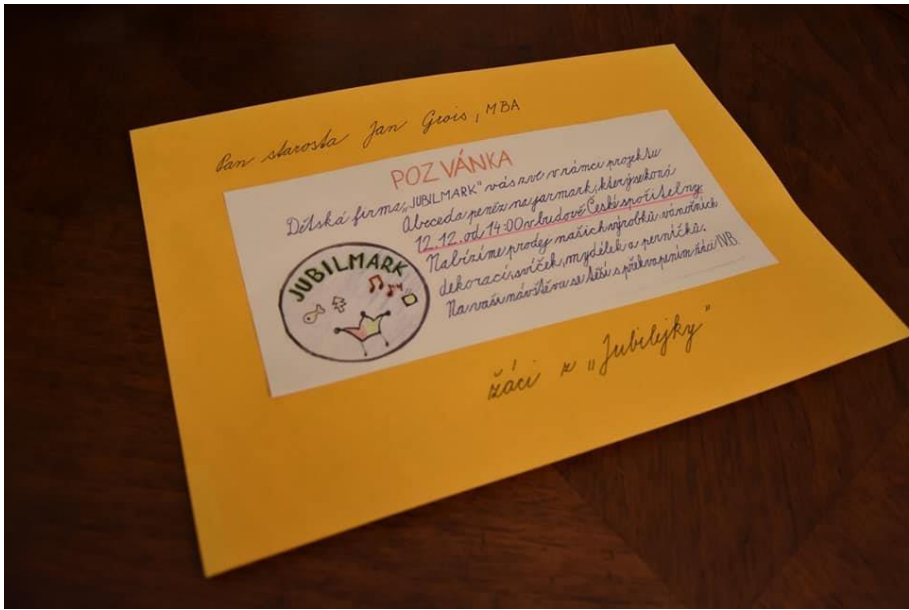 Pan starosta Jan Grois, MBA
POZVÁNKA
Dětská firma „JUBILMARK" vás zve v rámci projektu
Abeceda peněz na jarmark, který se koná
12.12. od 14:00 v budově České spořitelny.
Nabízíme prodej našich výrobků: vánočních
dekorací, svíček, mydélek a perníčků.
Na vaši návštěvu se těší s překvapením žáci IV.B.
JUBILMARK
žáci z „Jubilejky"